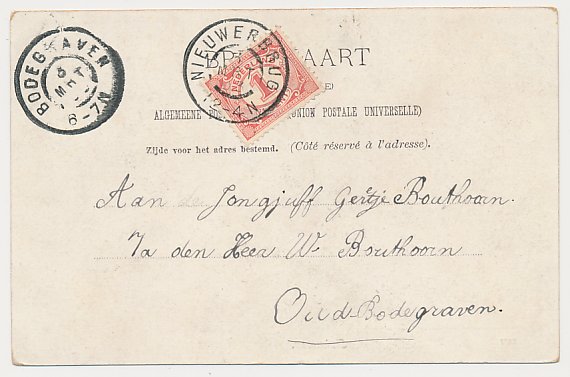 BODEGRAVEN
6-7N
NIEUWERBRUG
12-4N
NEDERLAND
1
BR KAART
ALGEMEENE (UNION POSTALE UNIVERSELLE)
Zijde voor het adres bestemd. (Côté réservé à l'adresse).
Aan de Jongjuff Gertje Bouthoorn.
Ja den Heer W Bouthoorn
Oud-Bodegraven.